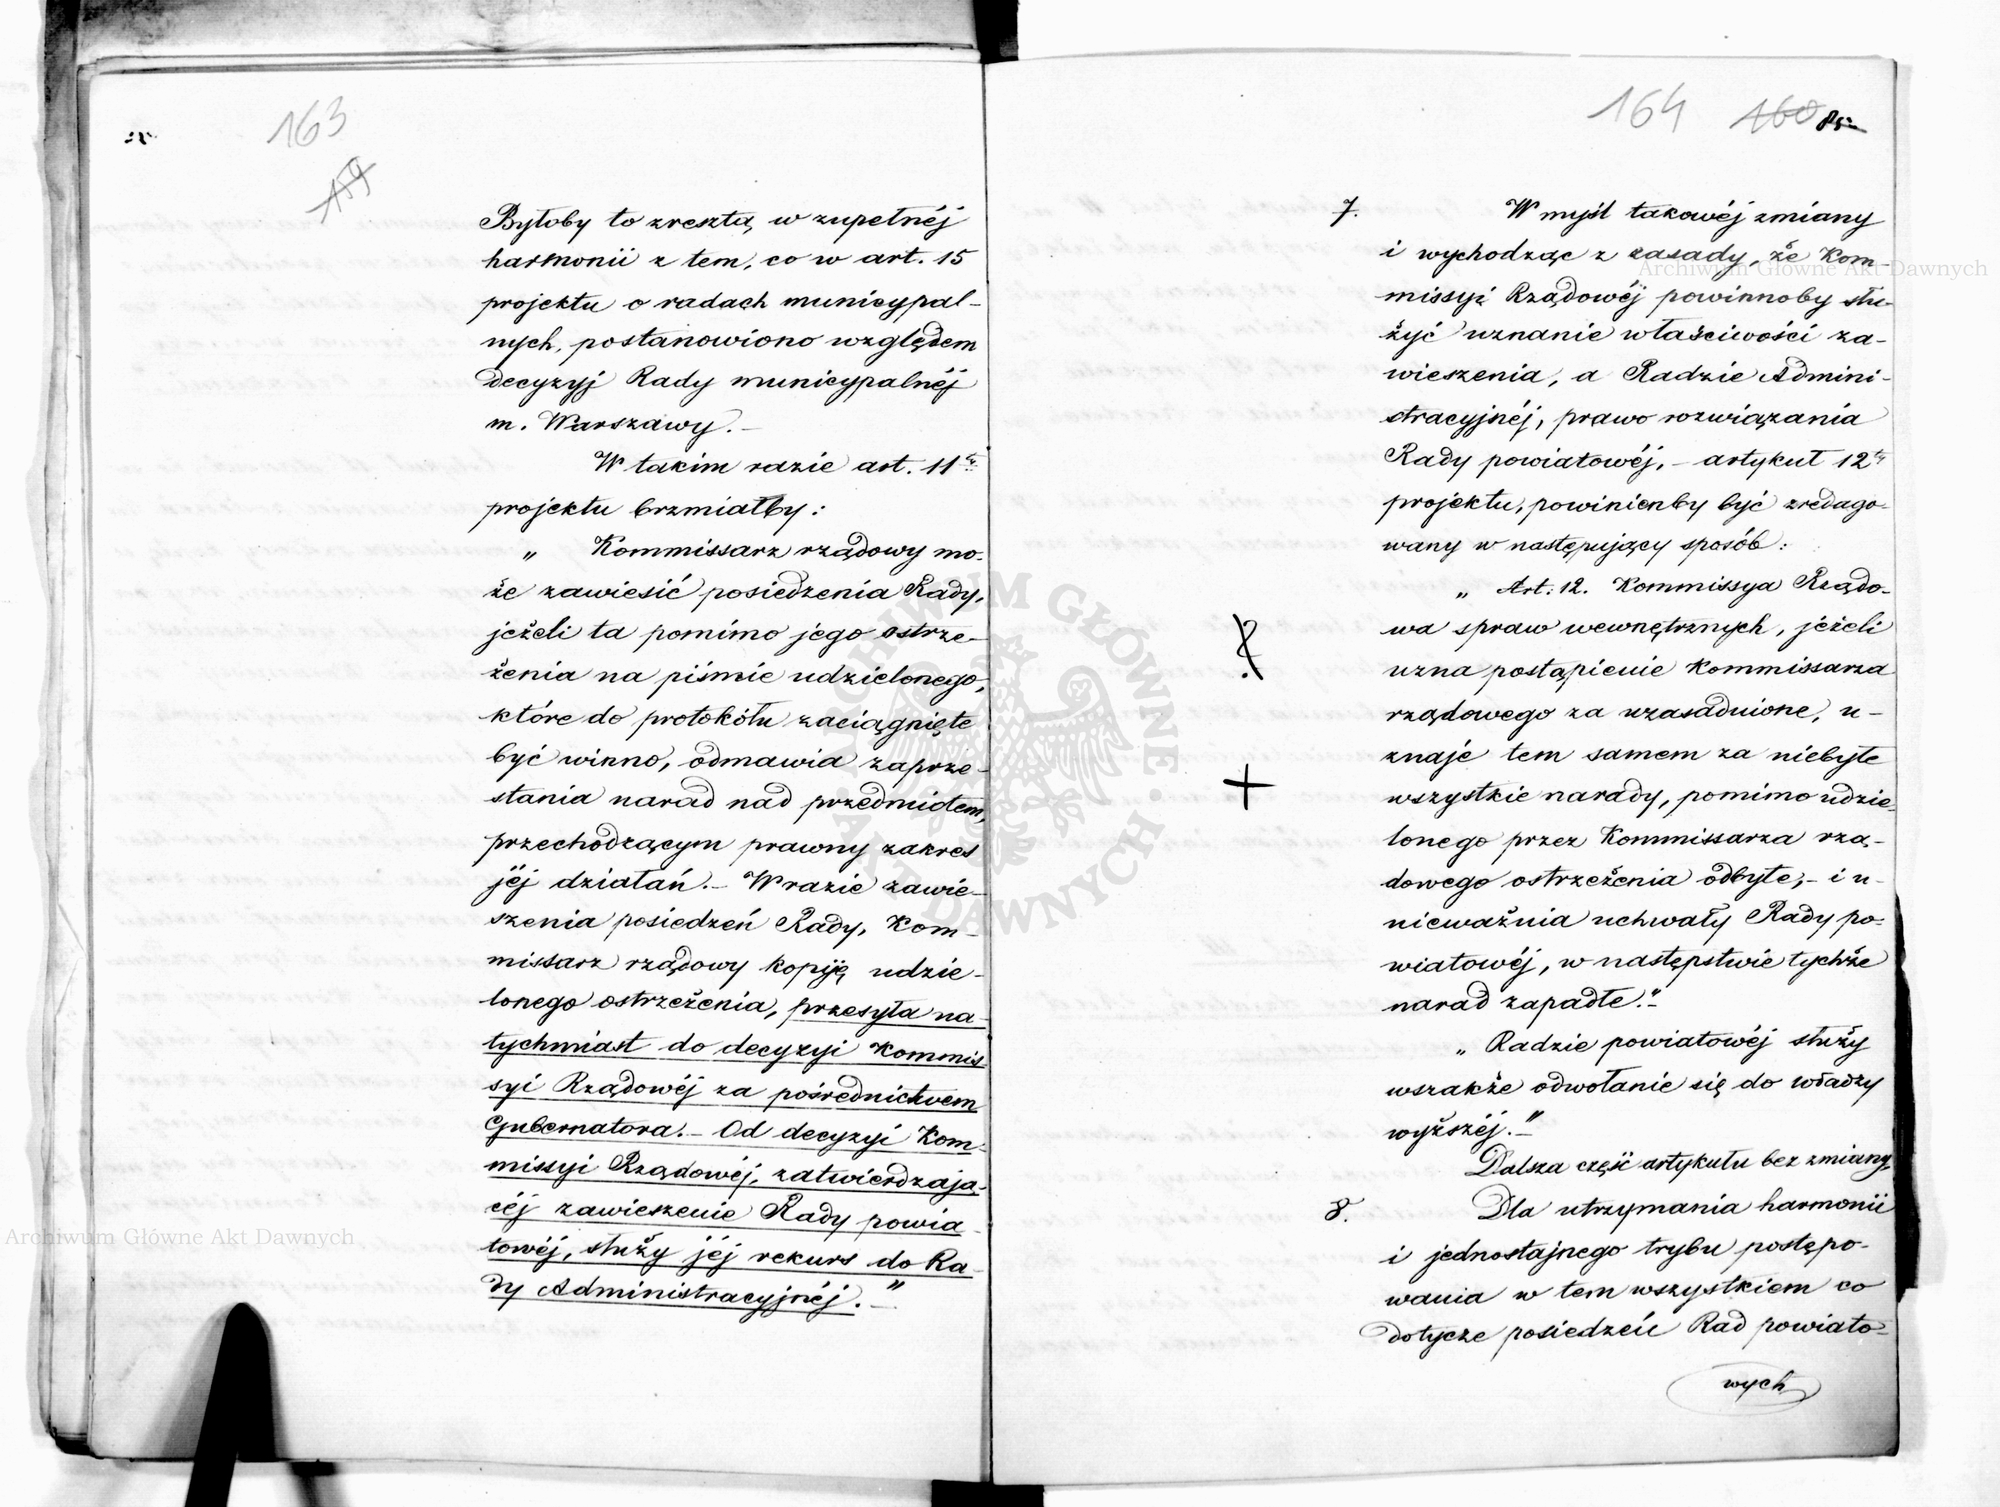 163
159
Byłoby to zresztą w zupełnéj
harmonii z tem, co w art. 15
projektu o radach municypal-
nych, postanowiono względem
decyzyj Rady municypalnéj
m. Warszawy.-
W takim razie art. 11ty
projektu brzmiałby:
„ Kommissarz rządowy mo-
że zawiesić posiedzenia Rady,
jeżeli ta pomimo jego ostrze-
żenia na piśmie udzielonego,
które do protokółu zaciągnięte
być winno, odmawia zaprze-
stania narad nad przedmiotem,
przechodzącym prawny zakres
jéj działań.- W razie zawie-
szenia posiedzeń Rady, Kom-
missarz rządowy kopiję udzie-
lonego ostrzeżenia, przesyła na-
tychmiast do decyzyi Kommis-
syi Rządowéj za pośrednictwem
Gubernatora.- Od decyzyi Kom-
missyi Rządowéj, zatwierdzają-
céj zawieszenie Rady powia-
towéj, służy jéj rekurs do Ra-
dy Administracyjnéj.-"
164 160 85
7. W myśl takowéj zmiany
i wychodząc z zasady, że Kom-
missyi Rządowéj powinnoby słu-
żyć uznanie właściwości za-
wieszenia, a Radzie Admini-
stracyjnéj, prawo rozwiązania
Rady powiatowéj,- artykuł 12ty
projektu, powinienby być zredago-
wany w następujący sposób:
„ Art: 12. Kommissya Rządo-
wa spraw wewnętrznych, jeżeli
uzna postąpienie Kommissarza
rządowego za uzasadnione, u-
znaje tem samem za niebyłe
wszystkie narady, pomimo udzie-
lonego przez Kommissarza rzą-
dowego ostrzeżenia odbyte,- i u-
nieważnia uchwały Rady po-
wiatowéj, w następstwie tychże
narad zapadłe."-
„ Radzie powiatowéj służy
wszakże odwołanie się do władzy
wyższéj.-"
Dalsza część artykułu bez zmiany.
8. Dla utrzymania harmonii
i jednostajnego trybu postępo-
wania w tem wszystkiem co
dotycze posiedzeń Rad powiato-
wych
? +
ARCHIWUM GŁÓWNE AKT DAWNYCH
Archiwum Główne Akt Dawnych
Archiwum Główne Akt Dawnych